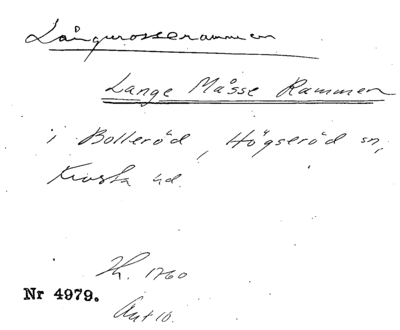 Långmosserammen
Lange Måsse Rammen
i Bolleröd, Högseröd sn,
Frosta hd.
H. 1760
Nr 4979.
Akt 10.